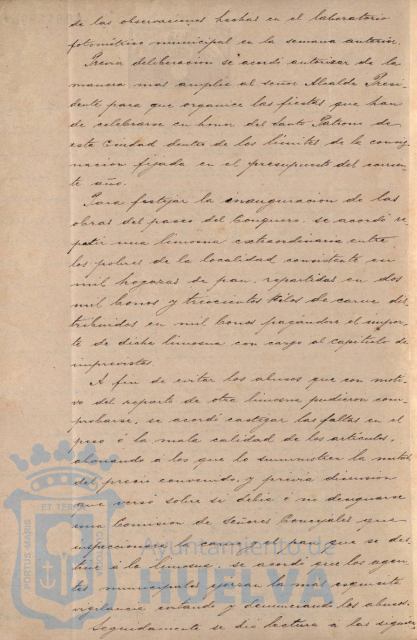 de las observaciones hechas en el laboratorio
fotométrico municipal en la semana anterior.
Previa deliberacion se acordó autorizar de la
manera mas amplia al señor Alcalde Presi-
dente para que organice las fiestas que han
de celebrarse en honor del Santo Patrono de
esta Ciudad dentro de los límites de la consig-
nacion fijada en el presupuesto del corrien-
te año.
Para festejar la inauguracion de las
obras del paseo del Conquero, se acordó re-
petir una limosna extraordinaria entre
los pobres de la localidad consistente en
mil hogazas de pan, repartidas en dos
mil bonos y trescientos kilos de carne dis-
tribuidos en mil bonos pagandose el impor-
te de dicha limosna con cargo al capítulo de
imprevistos.
A fin de evitar los abusos que con moti-
vo del reparto de otra limosna pudieron com-
probarse, se acordó castigar las faltas en el
peso ó la mala calidad de los artículos,
abonando á los que lo suministren la mitad
del precio convenido, y previa discusion
que versó sobre si debia ó no designarse
una Comision de Señores Concejales que
inspeccione la carne y el pan que se des-
tine á la limosna, se acordó que los agen-
tes municipales ejerzan la más esquisita
vigilancia evitando y denunciando los abusos.
Seguidamente se dió lectura á las siguien-
PORTUS MARIS ET TERRAE CUSTODIA
Ayuntamiento de
HUELVA